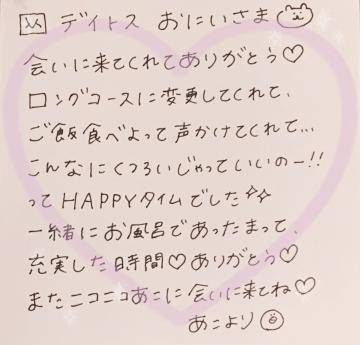 入 デイトス おにいさま
会いに来てくれてありがとう♡
ロングコースに変更してくれて、
ご飯食べよって声かけてくれて...
こんなにくつろいじゃっていいのー!!
って HAPPYタイムでした
一緒にお風呂であったまって、
充実した時間♡ありがとう♡
またニコニコあこに会いに来てね♡
あこより